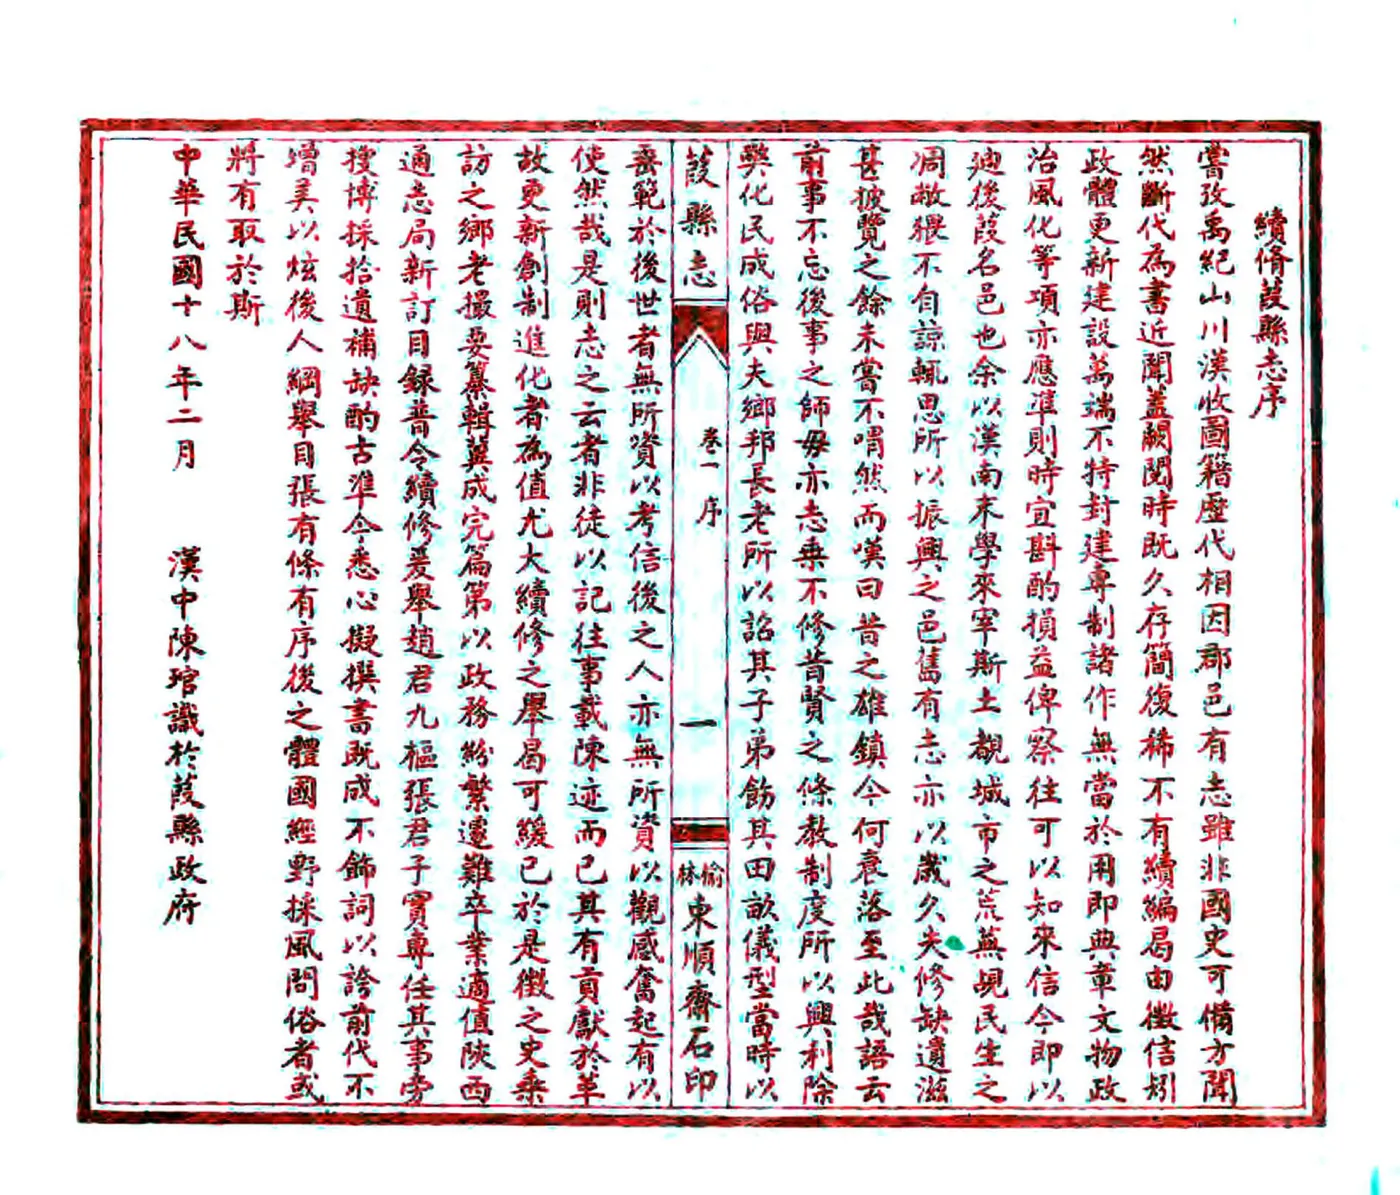 續脩葭縣志序
嘗攷禹紀山川漢收圖籍歷代相因郡邑有志雖非國史可備方聞
然斷代為書近聞蓋闕閱時既久存簡復稀不有續編局由徵信矧
政體更新建設萬端不特封建專制諸作無當於用即典章文物政
治風化等項亦應準則時宜斟酌損益俾察往可以知來信今即以
廸後葭名邑也余以漢南末學來宰斯土覩城市之荒蕪覘民生之
凋敝猥不自諒輒思所以振興之邑舊有志亦以歲久失修缺遺滋
甚披覽之餘未嘗不喟然而嘆曰昔之雄鎮今何衰落至此哉語云
前事不忘後事之師毋亦志乗不修昔賢之條教制度所以興利除
獘化民成俗與夫鄉邦長老所以詔其子弟飭其田畝儀型當時以
葭縣志
卷一 序
一
榆林東順齋石印
垂範於後世者無所資以考信後之人亦無所資以觀感奮起有以
使然哉是則志之云者非徒以記往事載陳迹而已其有貢獻於革
故更新創制進化者為值尤大續修之舉曷可緩已於是徵之史乗
訪之鄉老撮要纂輯冀成完篇第以政務紛繁遽難卒業適值陝西
通志局新訂目録普令續修爰舉趙君九樞張君子實專任其事旁
搜博採拾遺補缺酌古準今悉心擬撰書既成不飾詞以誇前代不
增美以炫後人綱舉目張有條有序後之體國經野採風問俗者或
將有取於斯
中華民國十八年二月 漢中陳琯識於葭縣政府